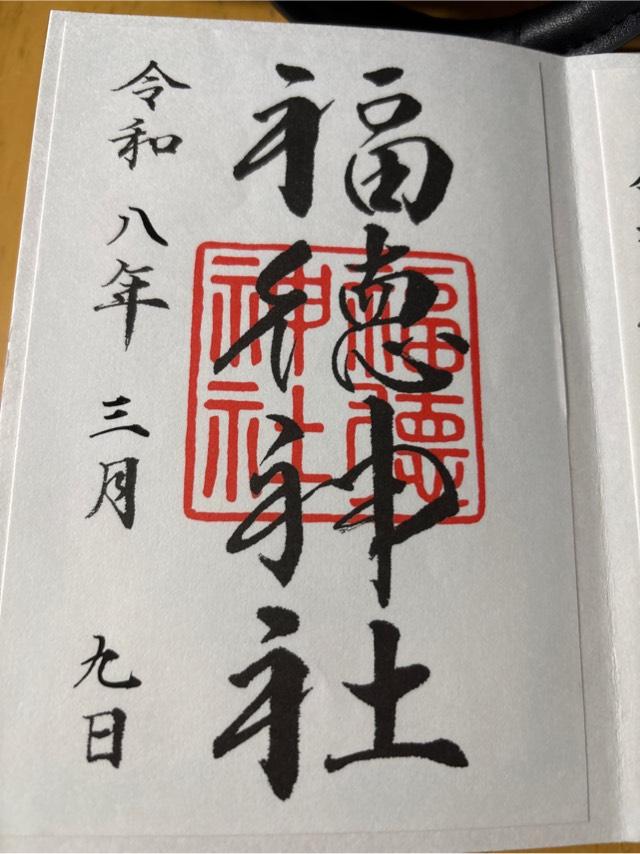 福徳神社
福徳神社
令和八年三月九日